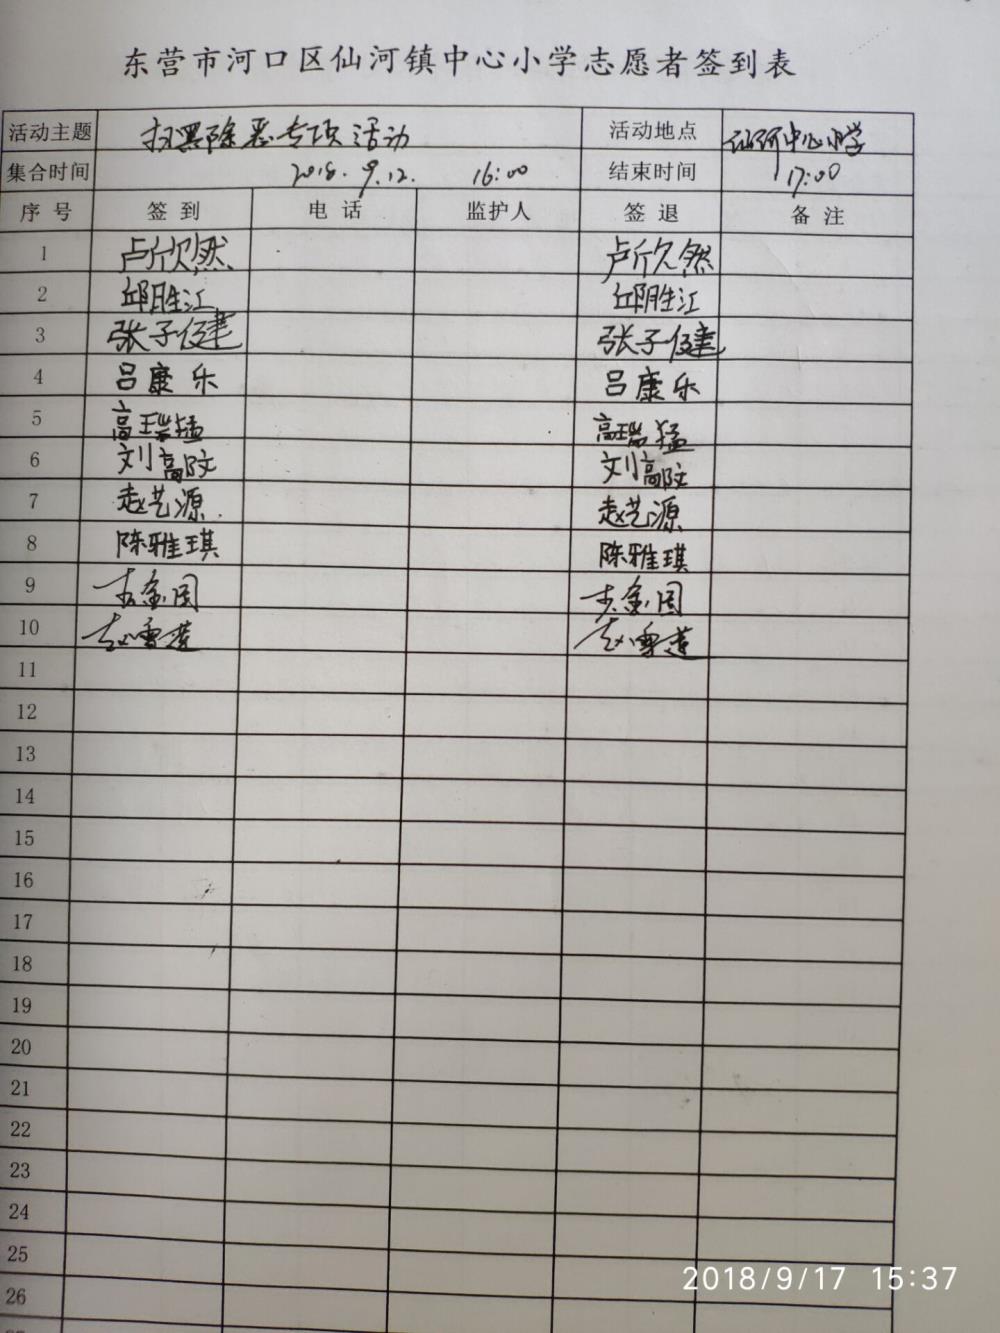 东营市河口区仙河镇中心小学志愿者签到表
活动主题 扫黑除恶专项活动 活动地点 仙河中心小学
集合时间 2018.9.12. 16:00 结束时间 17:00
序号 签到 电话 监护人 签退 备注
1 卢欣然 卢欣然
2 邱胜江 邱胜江
3 张子健 张子健
4 吕康乐 吕康乐
5 高瑞猛 高瑞猛
6 刘高 刘高
7 赵艺源 赵艺源
8 陈雅琪 陈雅琪
9
10 赵雪莲 赵雪莲
11
12
13
14
15
16
17
18
19
20
21
22
23
24
25
26
2018/9/17 15:37